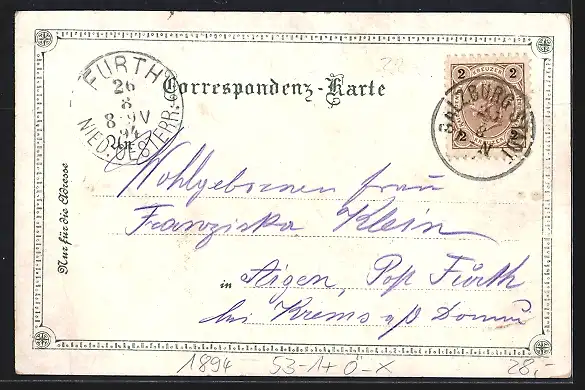 FURTH
26
8
8-9V
94
NIED.OESTERR.
Correspondenz-Karte
2 KREUZER 2
2 2
SALZBURG STADT
8
N
An
Wohlgebornen Frau
Franziska Klein
Nur für die Adresse
in Aigen, Post Fürth
bei Krems a/d Donau
1894 53-1+ Ö-X 28,-